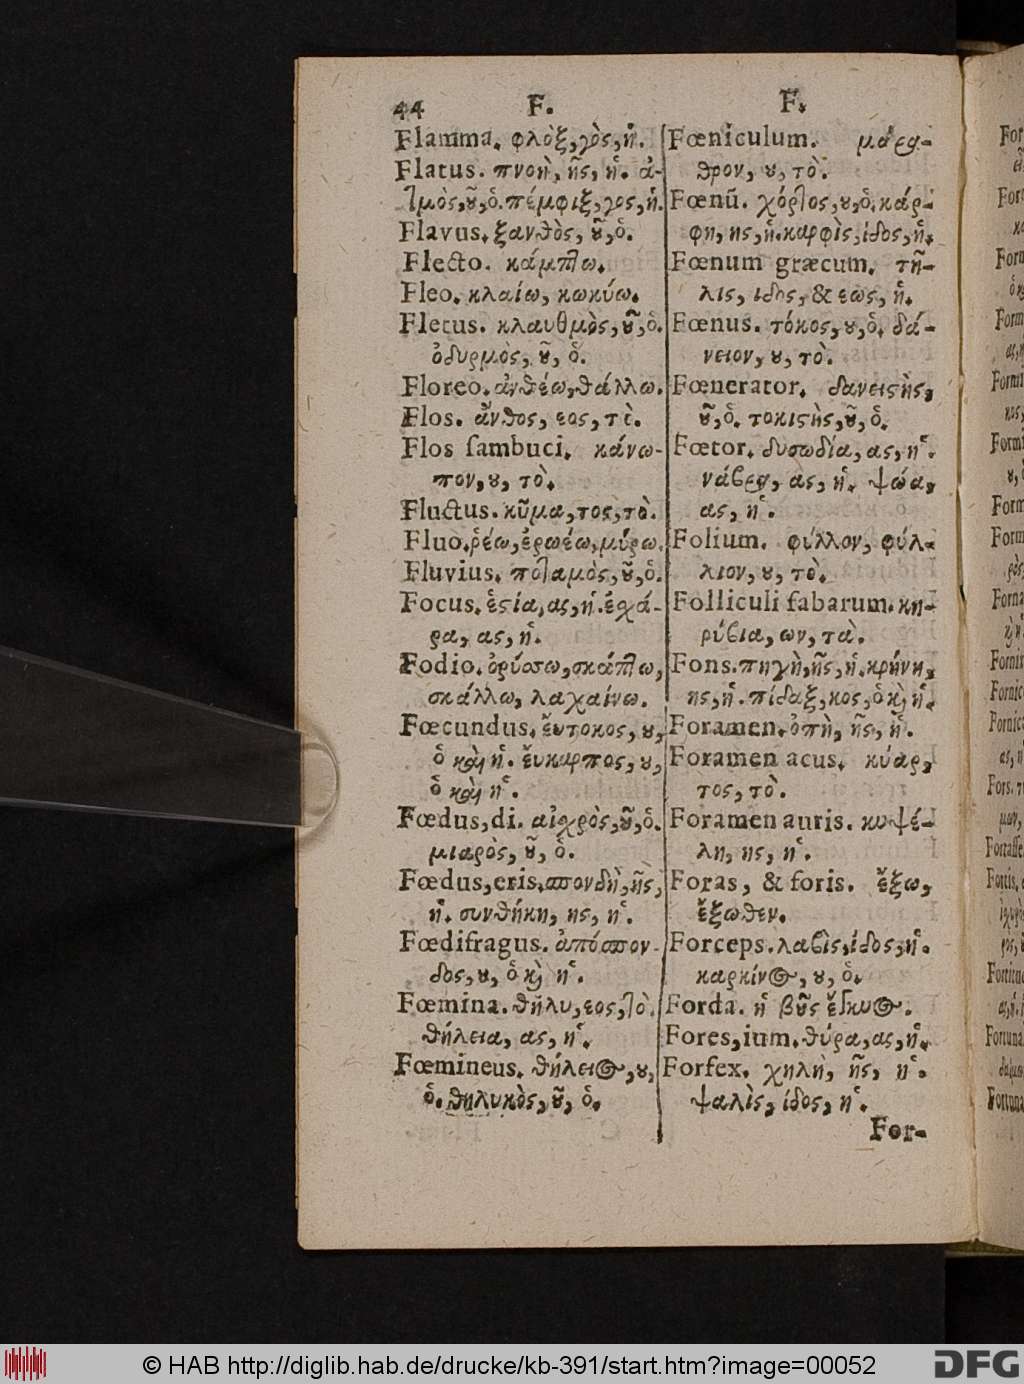 44 F. F.
Flamma. φλὸξ, γὸς, ἡ.
Flatus. πνοὴ, ῆς, ἡ. ἀ-
τμὸς, ȣ͂, ὁ. πέμφιξ, γος, ἡ.
Flavus. ξανθὸς, ȣ͂, ὁ.
Flecto. κάμπτω.
Fleo. κλαίω, κωκύω.
Fletus. κλαυθμὸς, ȣ͂, ὁ.
ὀδυρμὸς, ȣ͂, ὁ.
Floreo. ἀνθέω, θάλλω.
Flos. ἄνθος, εος, τὸ.
Flos ſambuci. κάνω-
πον, ȣ, τὸ.
Fluctus. κῦμα, τος, τὸ.
Fluo. ῥέω, ἐρωέω, μύρω.
Fluvius. ποταμὸς, ȣ͂, ὁ.
Focus. ἑστία, ας, ἡ. ἐσχά-
ρα, ας, ἡ.
Fodio. ὀρύσσω, σκάπτω,
σκάλλω, λαχαίνω.
Fœcundus. ἔυτοκος, ȣ,
ὁ καὶ ἡ. ἔυκαρπος, ȣ,
ὁ καὶ ἡ.
Fœdus, di. αἰσχρὸς, ȣ͂, ὁ.
μιαρὸς, ȣ͂, ὁ.
Fœdus, eris. σπονδὴ, ῆς,
ἡ. συνθήκη, ης, ἡ.
Fœdifragus. ἀπόσπον-
δος, ȣ, ὁ κ̀ ἡ.
Fœmina. θῆλυ, εος, τὸ.
θήλεια, ας, ἡ.
Fœmineus. θήλειος, ȣ,
ὁ. θηλυκὸς, ȣ͂, ὁ.
Fœniculum. μάρα-
θρον, ȣ, τὸ.
Fœnũ. χόρτος, ȣ, ὁ. κάρ-
φη, ης, ἡ. καρφὶς, ίδος, ἡ.
Fœnum græcum. τῆ-
λις, ιδος, & εως, ἡ.
Fœnus. τόκος, ȣ, ὁ. δά-
νειον, ȣ, τὸ.
Fœnerator. δανειστὴς,
ȣ͂, ὁ. τοκιστὴς, ȣ͂, ὁ.
Fœtor. δυσωδία, ας, ἡ.
νάβρα, ας, ἡ. ψώα,
ας, ἡ.
Folium. φύλλον, φύλ-
λιον, ȣ, τὸ.
Folliculi fabarum. κη-
ρύβια, ων, τὰ.
Fons. πηγὴ, ῆς, ἡ. κρήνη,
ης, ἡ. πίδαξ, κος, ὁ κ̀ ἡ.
Foramen. ὀπὴ, ῆς, ἡ.
Foramen acus. κύαρ,
τος, τὸ.
Foramen auris. κυψέ-
λη, ης, ἡ.
Foras, & foris. ἔξω,
ἔξωθεν.
Forceps. λαβὶς, ίδος, ἡ.
καρκίνος, ȣ, ὁ.
Forda. ἡ βȣ͂ς ἔγκυος.
Fores, ium. θύρα, ας, ἡ.
Forfex. χηλὴ, ῆς, ἡ.
ψαλὶς, ίδος, ἡ.
For-
© HAB http://diglib.hab.de/drucke/kb-391/start.htm?image=00052
DFG